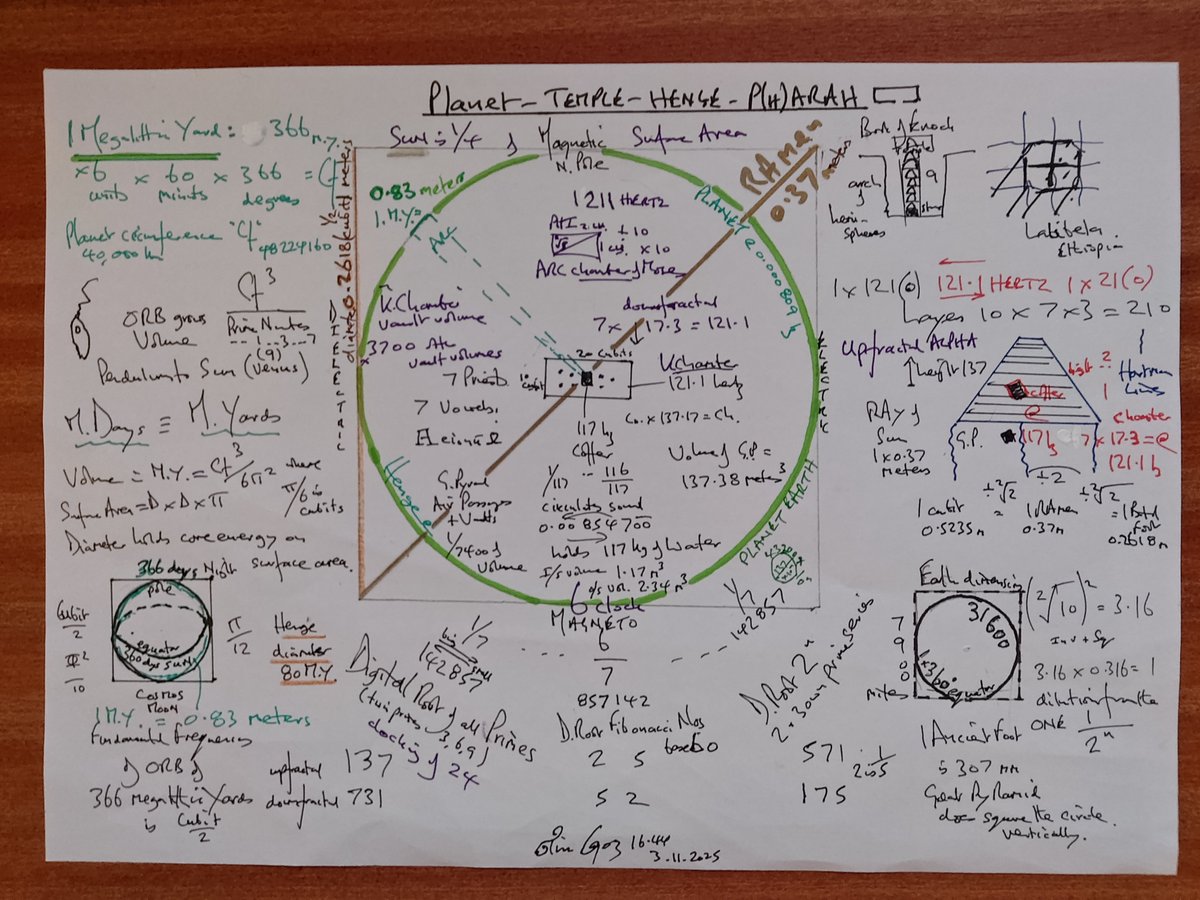 Planet - TEMPLE - HENGE - P(H)ARAH
1 Megalithic Yard: 366 M.Y.
×6 × 60 × 366 = Cf
units minits degrees
Planet circumference "Cf"
40,000 km 48224160
Cf³
ORB gross
Volume
Prime Numbers
1...3...7
(9)
Pendulum to Sun (Venus)
M. Days ≡ M. Yards
Volume = M.Y. = Cf³/6π² where
π/6 is
cubits
Surface Area = D × D × π
Diameter holds core energy on
surface area.
366 days Night
pole
equator
360 days SUN
COSMOS
MOON
Cubit
2
10
π
12
Henge
diameter
80 M.Y.
1 M.Y. = 0.83 meters
Fundamental Frequencies
of ORB of
366 megalithic Yards
is Cubit
2
upfractal 137
downfractal 731
Sun is 1/4 of
Surface Area
Magnetic
N. Pole
1/2 diameter 0.2618 (cubit) meters
DIELECTRIC
0.83 meters
1. M.Y. =
ARC
RAmen
0.37 meters
PLANET @ 0.000809 h
ELECTRIC
PLANET EARTH
1211 HERTZ
ARC chamber of Moses
K. Chamber
vault volume
× 3700 Air
vault volumes
downfractal
7 × 17.3 = 121.1
20 cubits
K Chamber
121.1 herz
7 Priests
7 Vowels.
117 kg
Coffer
Co. × 137.17 = Ch.
Volume of G.P =
137.38 meters³
1/117 116/117
circulates sound
0.00854700
holds 117 kg of Water
I/s volume 1.17 m³
o/s vol. 2.34 m³
G. Pyramid
Air Passages
+ Vaults
1/7400 of
Volume
Henge @
6 clock
MAGNETO
6
7
857142
1/7
142857
1/7
142857
Digital Root of all Primes
(twin primes 3,6,9)
clocking of 24
D. Root Fibonacci Nos
base 60
2 5
5 2
D. Root 2ⁿ
2+3 own prime series
571
175
Book of Enoch
arch
of
hemi-
spheres
9
Lalibela
Ethiopia
1 × 121(0) 121.1 HERTZ 1 × 21(0)
Layers 10 × 7 × 3 = 210
Upfractal ALPHA
height 137
Hartman
Lines
RAy of
Sun
1 × 0.37
meters
G.P.
coffer
@
117 kg
chamber
7 × 17.3 = @
121.1 h
÷²√2 ÷2 ÷²√2
1 cubit = 1 RAmen
0.5235m 0.37m 0.2618m
Earth dimensions
31600
1×360° equator
7
9
0
0
miles
(²√10)² = 3.16
Inv + Sq
3.16 × 0.316 = 1
dilution from the
ONE 1/2ⁿ
1 Ancient Foot
is 307 mm
Great Pyramid
does square the circle
vertically.
16.44
3.11.2025